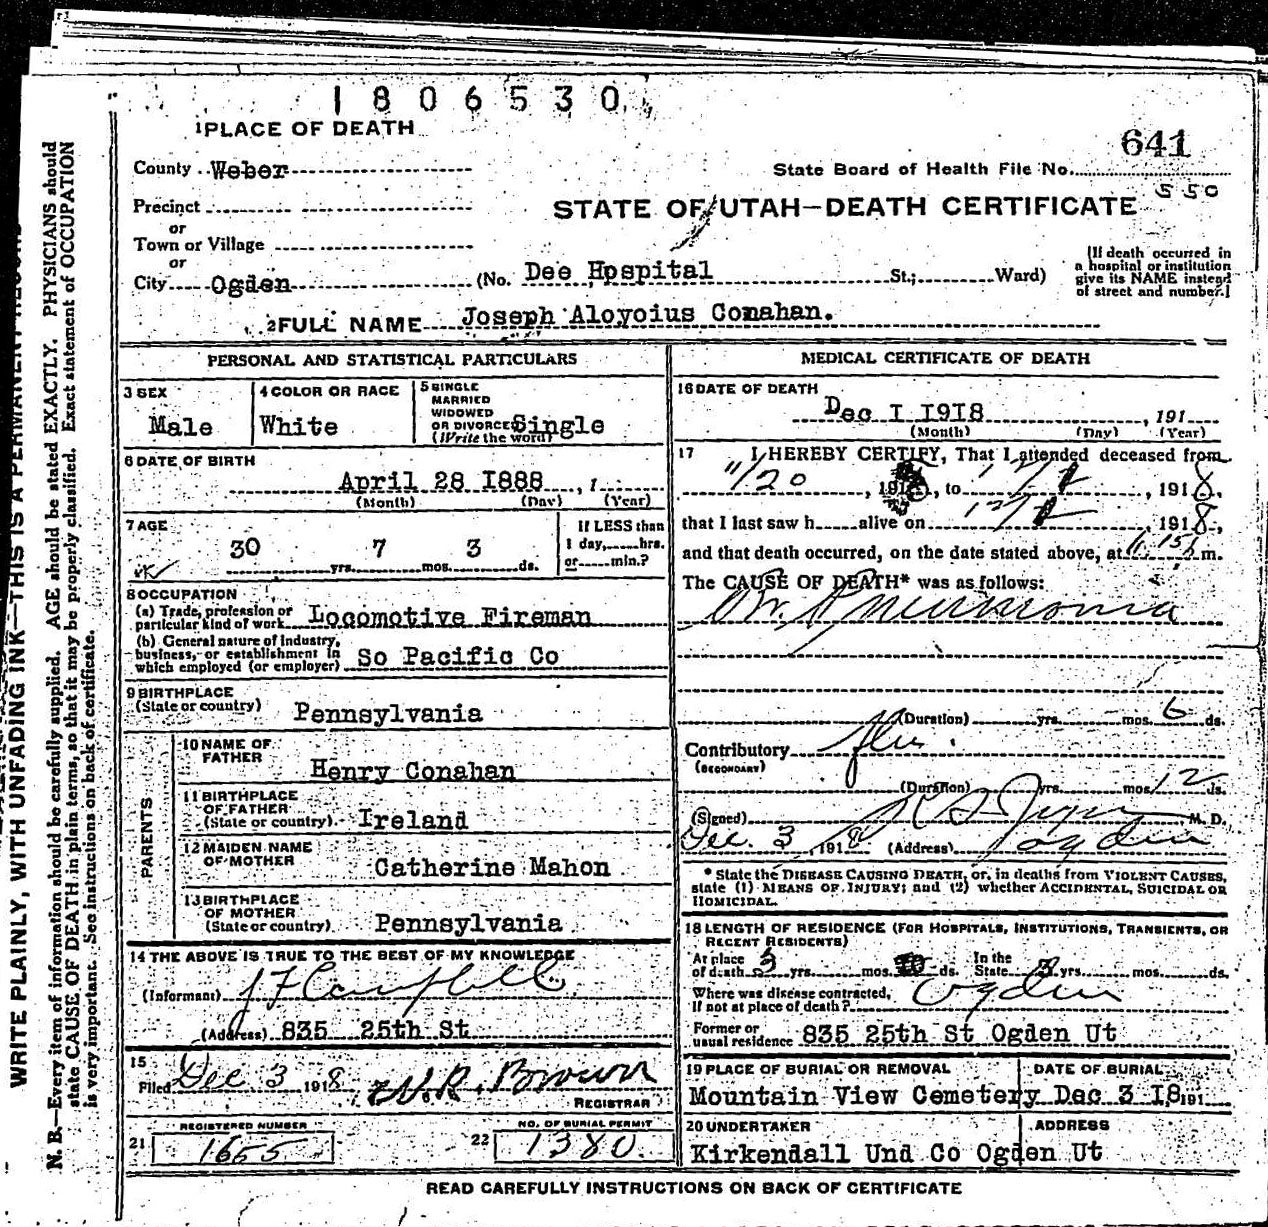 1806530
1 PLACE OF DEATH
641
County Weber
State Board of Health File No.
550
Precinct
STATE OF UTAH—DEATH CERTIFICATE
or
Town or Village
or
City Ogden (No. Dee Hospital St.; Ward)
[If death occurred in
a hospital or institution
give its NAME instead
of street and number.]
2 FULL NAME Joseph Aloyoius Conahan.
PERSONAL AND STATISTICAL PARTICULARS
3 SEX
Male
4 COLOR OR RACE
White
5 SINGLE
MARRIED
WIDOWED
OR DIVORCED Single
(Write the word)
6 DATE OF BIRTH
April 28 I888 , 1
(Month) (Day) (Year)
7 AGE
30 yrs. 7 mos. 3 ds.
If LESS than
1 day, hrs.
or min.?
8 OCCUPATION
(a) Trade, profession or
particular kind of work Locomotive Fireman
(b) General nature of industry,
business, or establishment in
which employed (or employer) So Pacific Co
9 BIRTHPLACE
(State or country) Pennsylvania
PARENTS
10 NAME OF
FATHER Henry Conahan
11 BIRTHPLACE
OF FATHER
(State or country) Ireland
12 MAIDEN NAME
OF MOTHER Catherine Mahon
13 BIRTHPLACE
OF MOTHER
(State or country) Pennsylvania
14 THE ABOVE IS TRUE TO THE BEST OF MY KNOWLEDGE
(Informant) J F Campbell
(Address) 835 25th St
15
Filed Dec 3 1918 W.R. Brown
REGISTRAR
REGISTERED NUMBER
21 1655
NO. OF BURIAL PERMIT
22 1380
MEDICAL CERTIFICATE OF DEATH
16 DATE OF DEATH
Dec I I9I8 , 191
(Month) (Day) (Year)
17 I HEREBY CERTIFY, That I attended deceased from
11/20 , 191 , to 12/1 , 1918,
that I last saw h alive on 12/1 , 1918,
and that death occurred, on the date stated above, at m.
The CAUSE OF DEATH* was as follows:
Pneumonia
(Duration) yrs. mos. 6 ds.
Contributory flu.
(SECONDARY)
(Duration) yrs. mos. 12 ds.
(Signed) M. D.
Dec. 3, 1918 (Address) Ogden
* State the DISEASE CAUSING DEATH, or, in deaths from VIOLENT CAUSES,
state (1) MEANS OF INJURY; and (2) whether ACCIDENTAL, SUICIDAL OR
HOMICIDAL.
18 LENGTH OF RESIDENCE (FOR HOSPITALS, INSTITUTIONS, TRANSIENTS, OR
RECENT RESIDENTS)
At place
of death 3 yrs. mos. ds.
In the
State 3 yrs. mos. ds.
Where was disease contracted,
if not at place of death? Ogden
Former or
usual residence 835 25th St Ogden Ut
19 PLACE OF BURIAL OR REMOVAL
DATE OF BURIAL
Mountain View Cemetery Dec 3 I8 191
20 UNDERTAKER
ADDRESS
Kirkendall Und Co Ogden Ut
READ CAREFULLY INSTRUCTIONS ON BACK OF CERTIFICATE
WRITE PLAINLY, WITH UNFADING INK—THIS IS A PERMANENT RECORD
N. B.—Every item of information should be carefully supplied. AGE should be stated EXACTLY. PHYSICIANS should
state CAUSE OF DEATH in plain terms, so that it may be properly classified. Exact statement of OCCUPATION
is very important. See instructions on back of certificate.